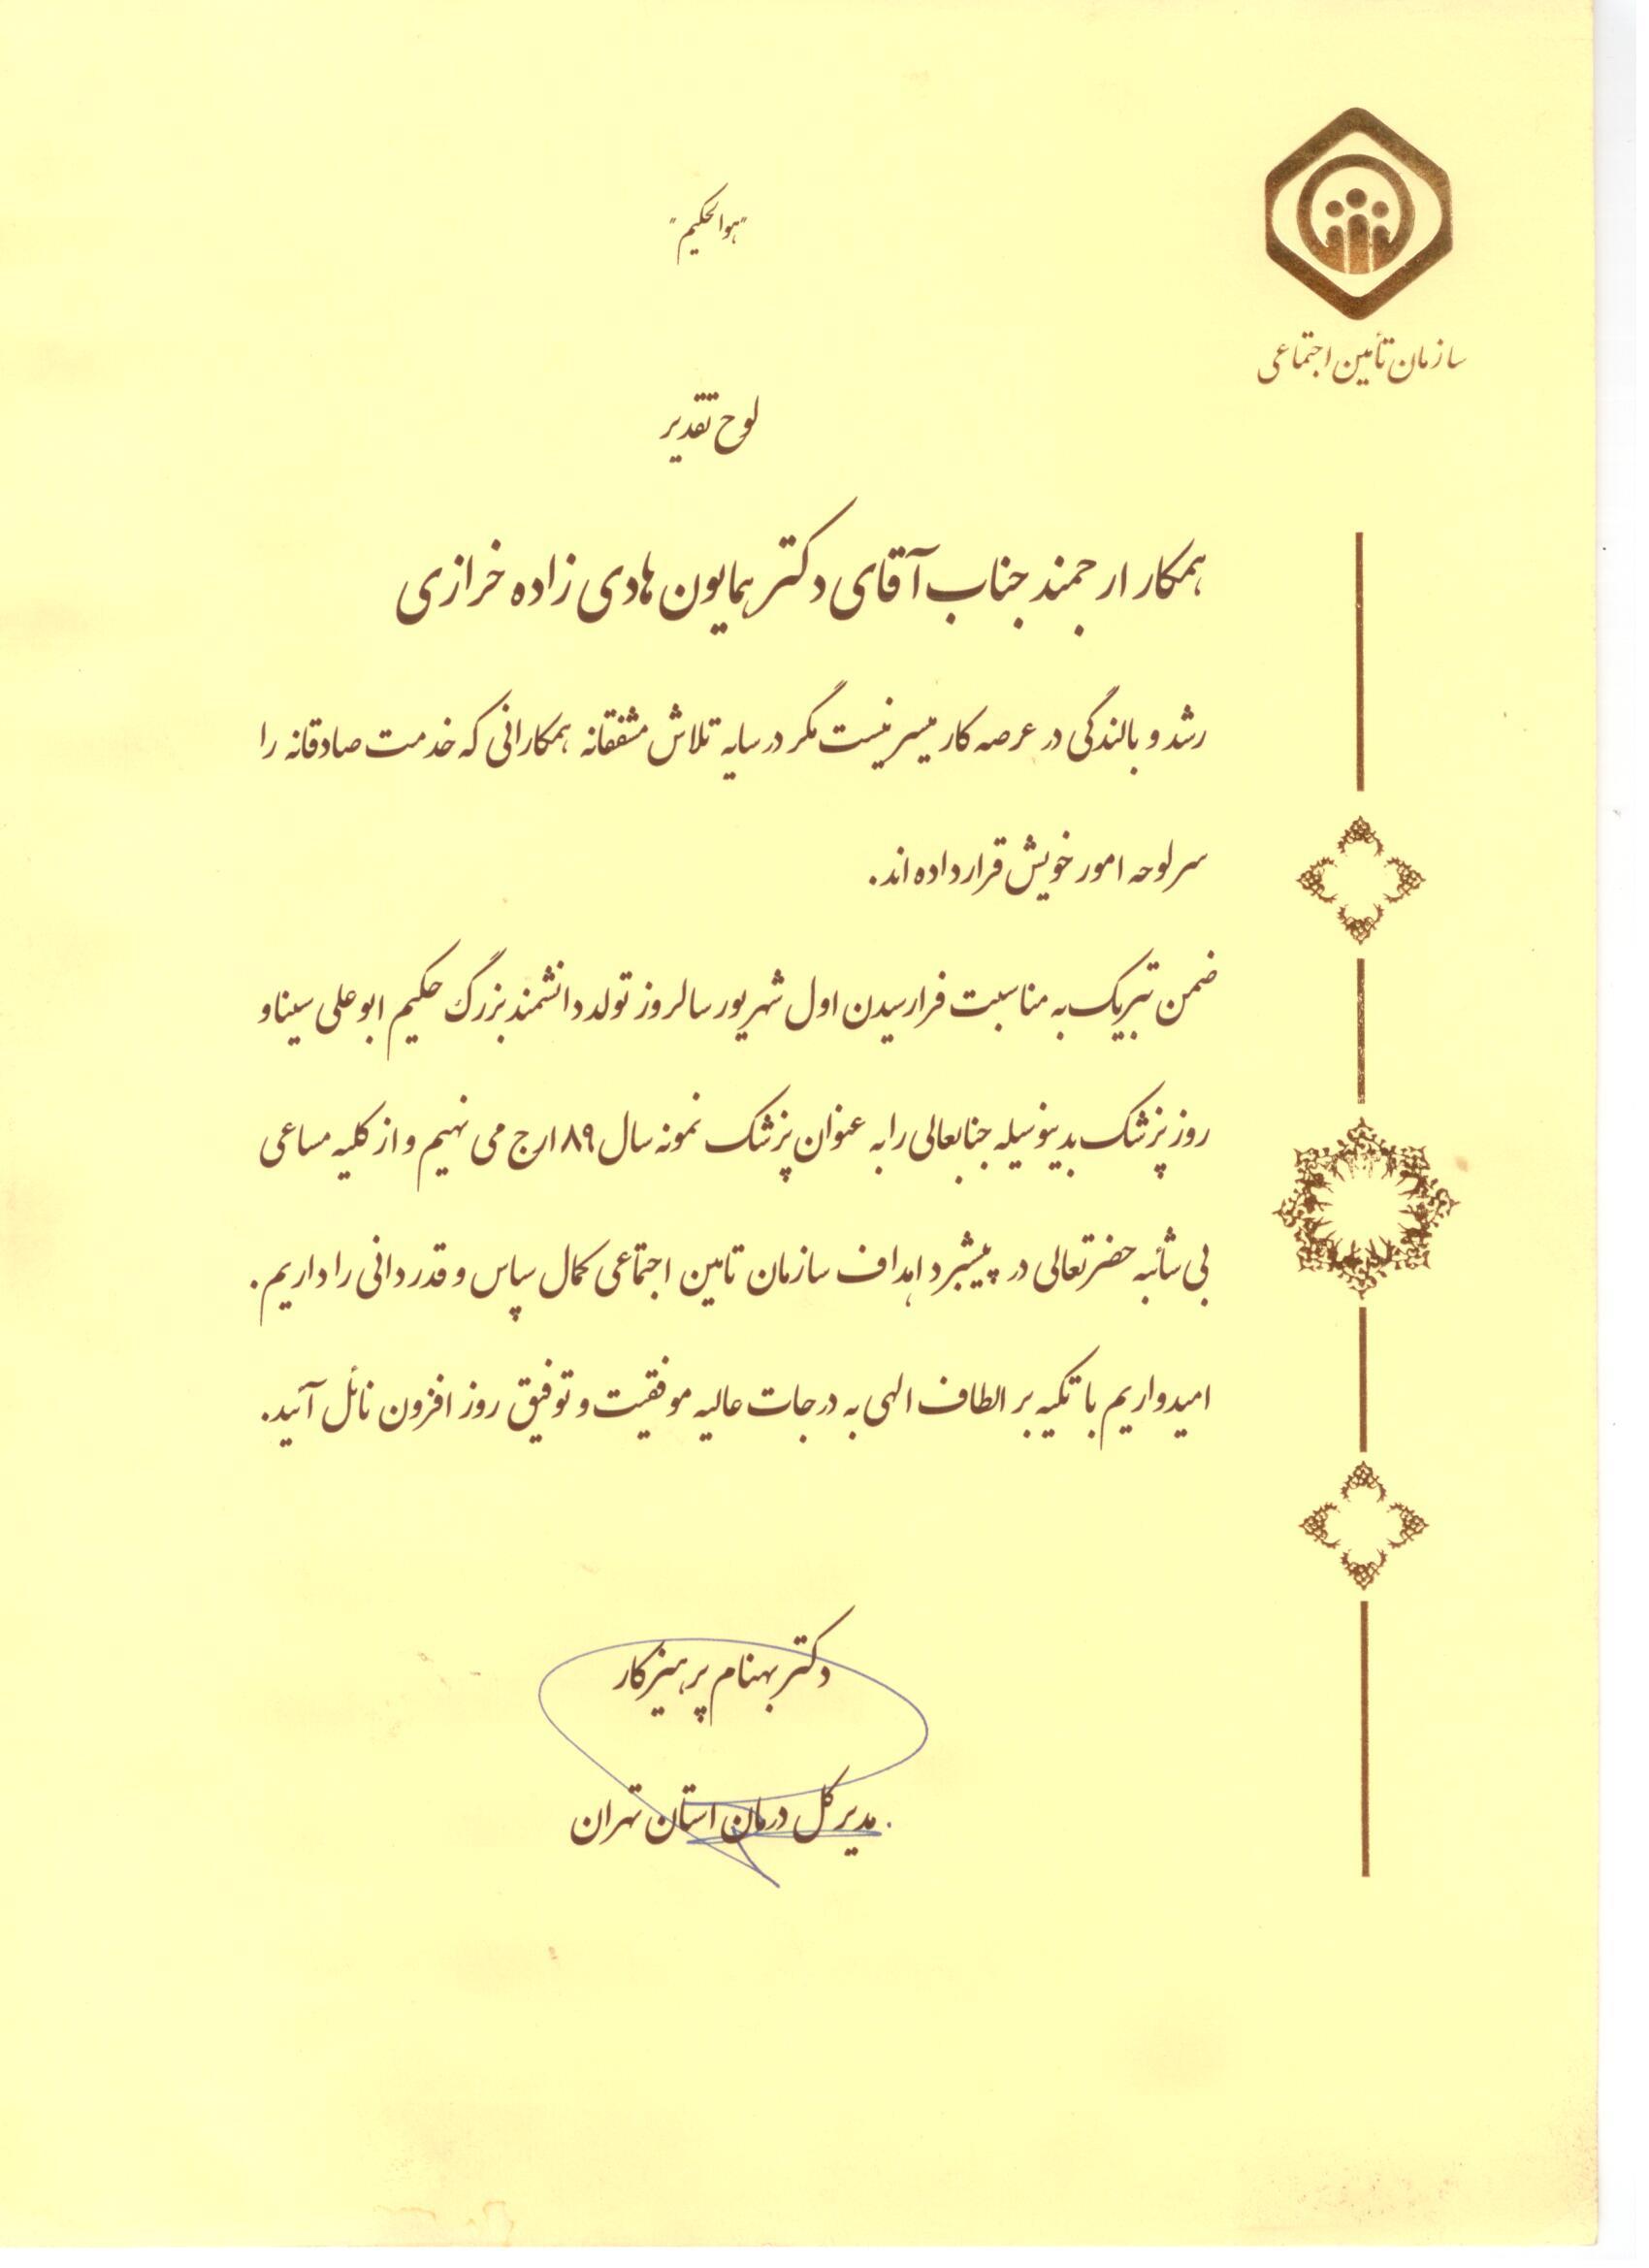 "هوالحکیم"
سازمان تأمین اجتماعی
لوح تقدیر
همکار ارجمند جناب آقای دکتر همایون هادی زاده خرازی
رشد و بالندگی در عرصه کار میسر نیست مگر در سایه تلاش مشفقانه همکارانی که خدمت صادقانه را
سرلوحه امور خویش قرار داده اند.
ضمن تبریک به مناسبت فرارسیدن اول شهریور سالروز تولد دانشمند بزرگ حکیم ابوعلی سینا و
روز پزشک بدینوسیله جنابعالی را به عنوان پزشک نمونه سال ۸۹ ارج می نهیم و از کلیه مساعی
بی شائبه حضرتعالی در پیشبرد اهداف سازمان تامین اجتماعی کمال سپاس و قدردانی را داریم.
امیدواریم با تکیه بر الطاف الهی به درجات عالیه موفقیت و توفیق روز افزون نائل آئید.
دکتر بهنام پرهیزکار
مدیر کل درمان استان تهران